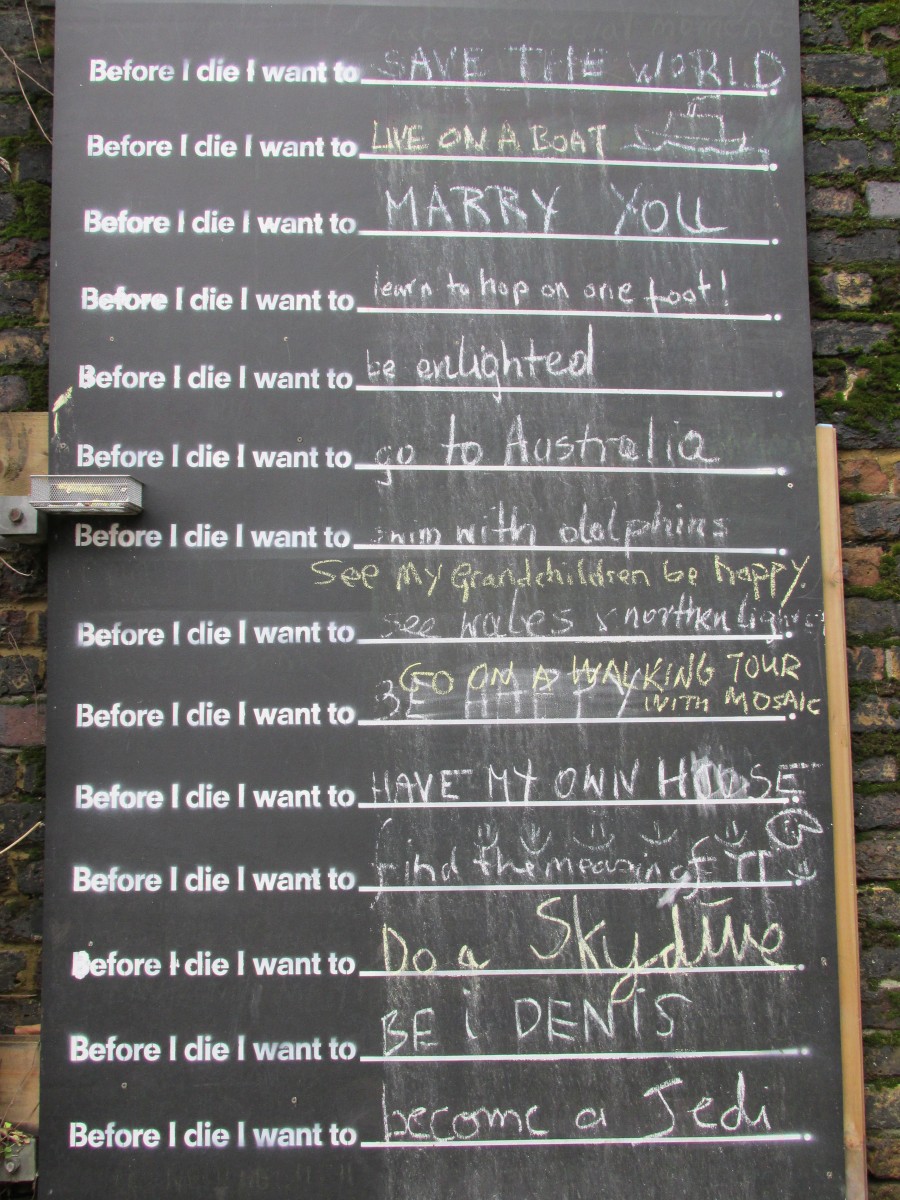 Before I die I want to SAVE THE WORLD.
Before I die I want to LIVE ON A BOAT.
Before I die I want to MARRY YOU.
Before I die I want to learn to hop on one foot!
Before I die I want to be enlighted.
Before I die I want to go to Australia.
Before I die I want to swim with dolphins.
See my grandchildren be happy.
Before I die I want to see wales & northen lights.
GO ON A WALKING TOUR
WITH MOSAIC
Before I die I want to BE HAPPY.
Before I die I want to HAVE MY OWN HOUSE.
Before I die I want to find the meaning of
Before I die I want to Do a Skydive.
Before I die I want to BE i DENiS.
Before I die I want to become a Jedi.